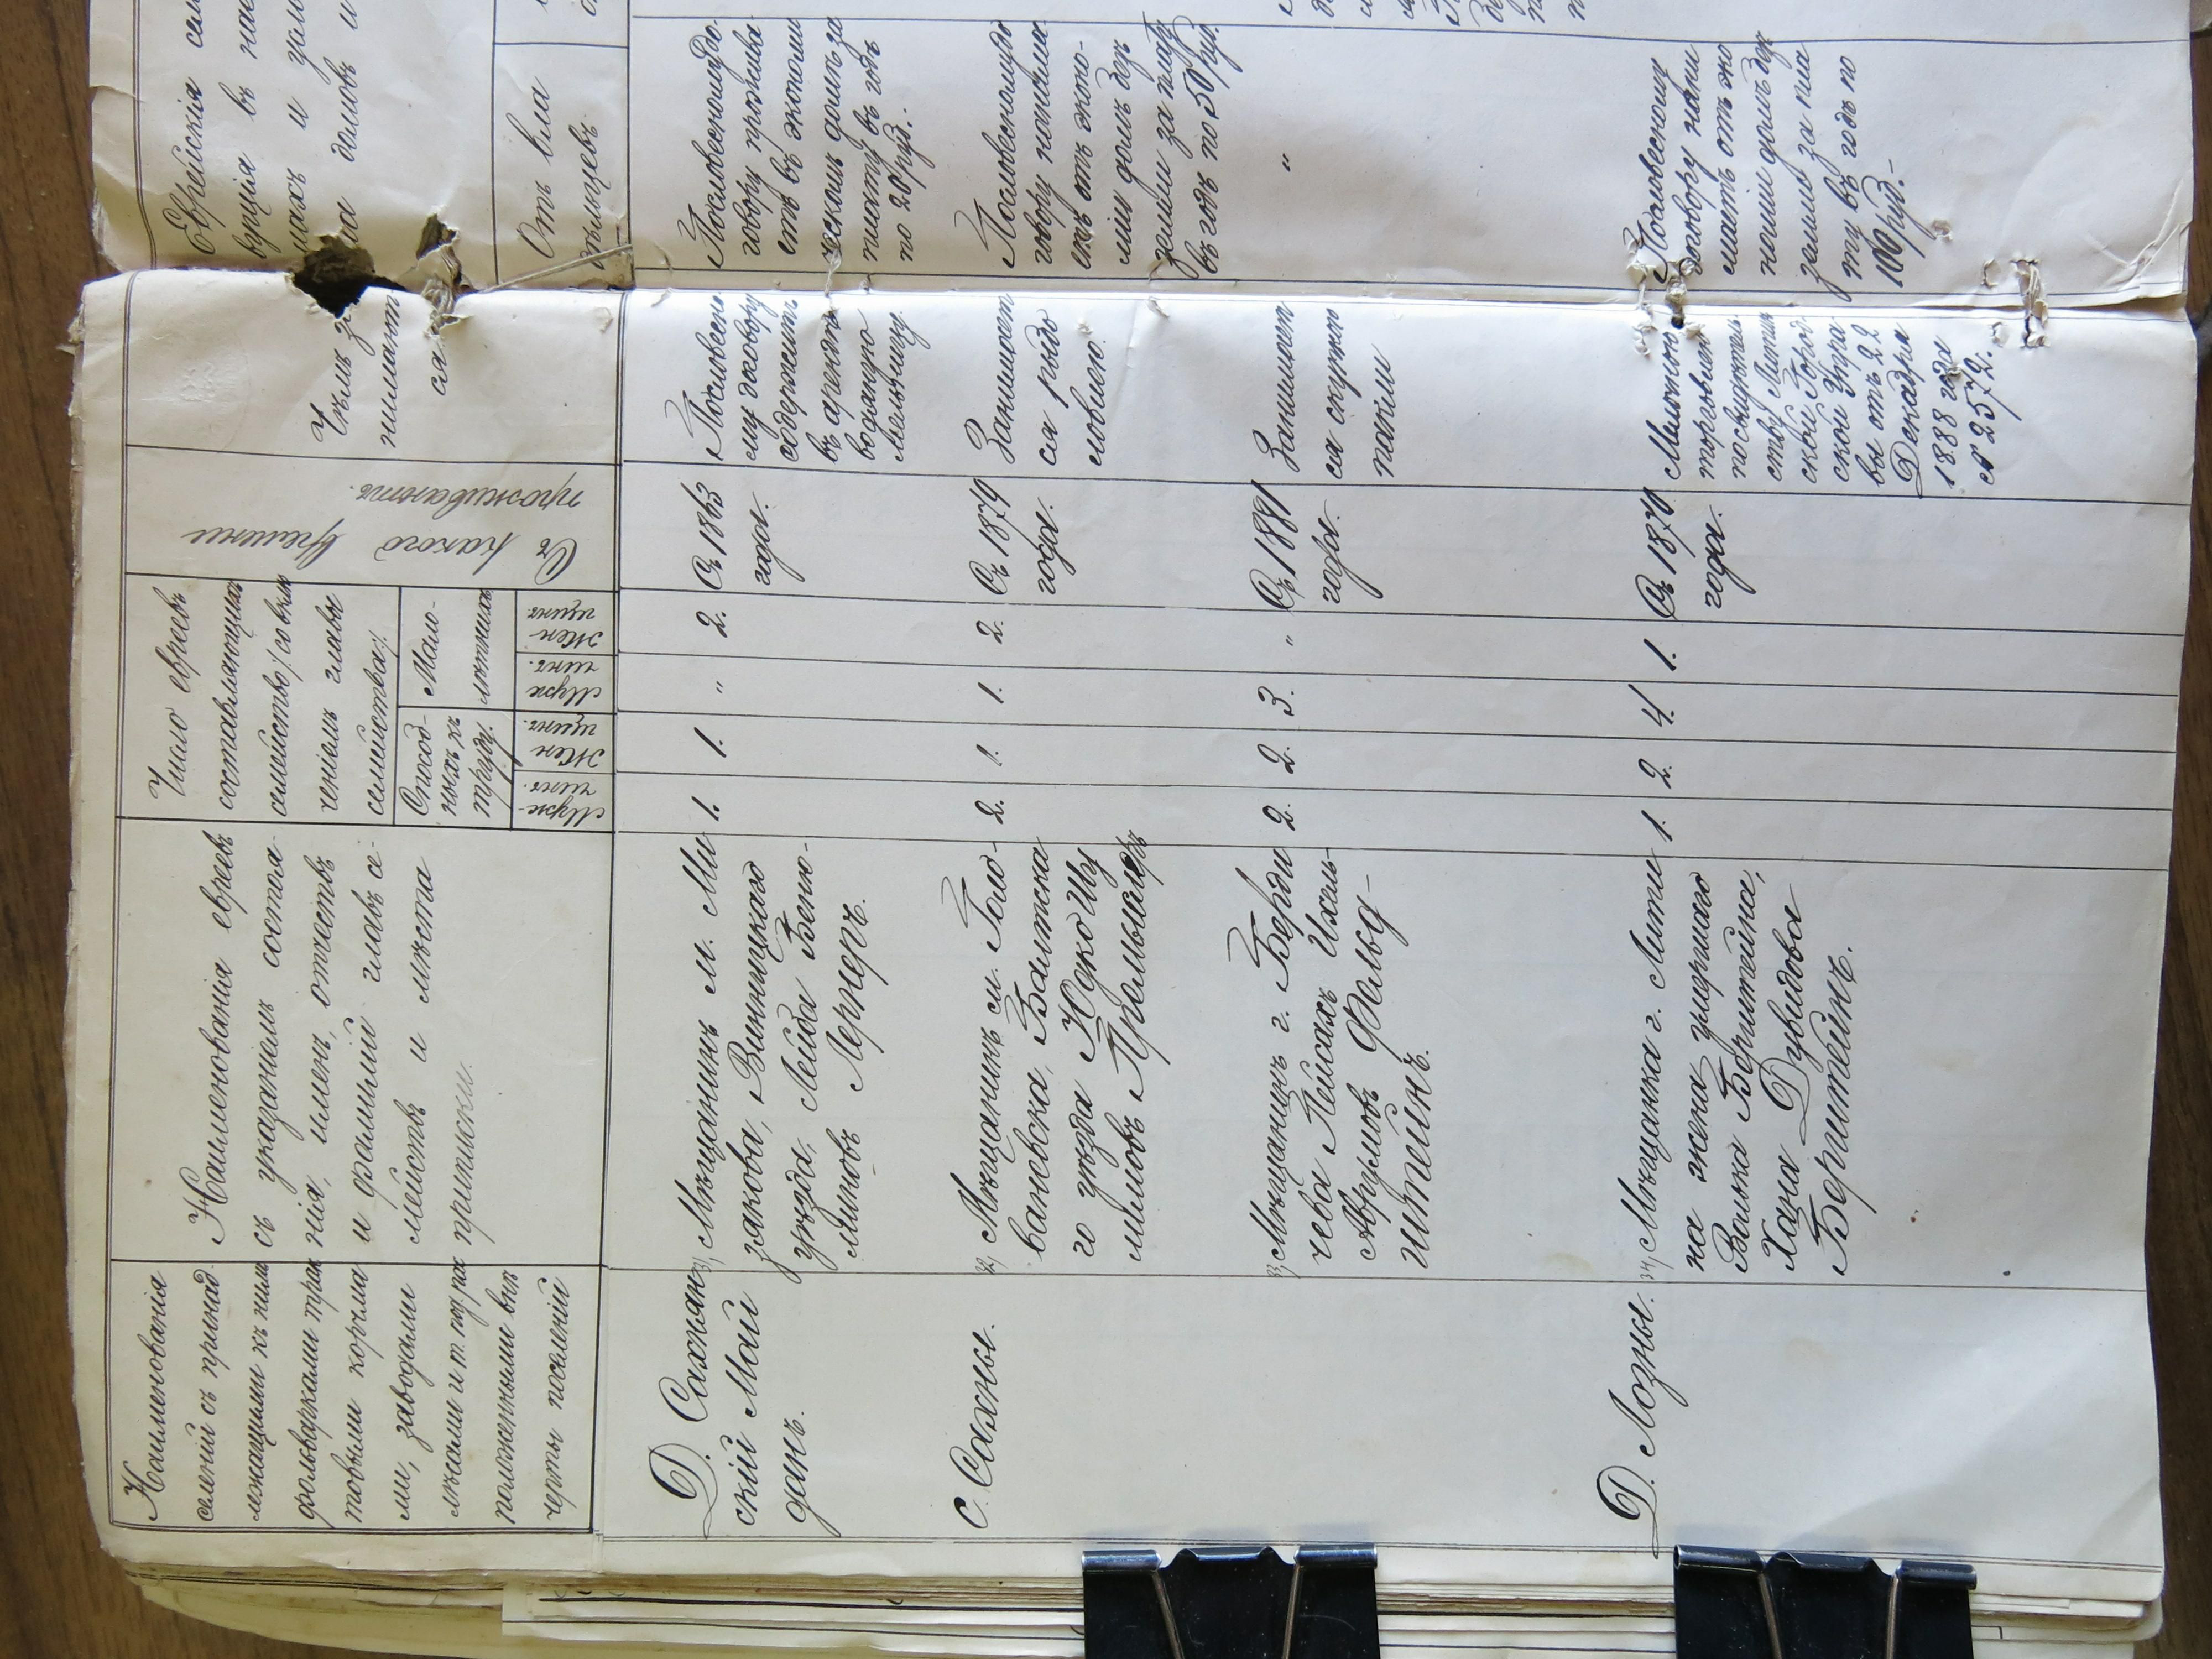 Наименованія
селеній съ принад
лежащими къ нимъ
фольварками трак
товыми корчма
ми, заводами
лѣсами и т. под. рас
положенными внѣ
черты поселеній
Наименованія евреевъ
съ указаніемъ состоя-
нія, именъ, отчествъ
и фамилій главъ се-
мействъ и мѣста
приписки.
Число евреевъ
составляющихъ
семейство /со вклю
ченіемъ главы
семейства/.
Способ-
ныхъ къ
труду.
Мало-
лѣтнихъ
Муж-
чинъ.
Жен
щинъ.
Муж
чинъ.
Жен-
щинъ
Съ
какого
времени
проживаютъ.
Чѣмъ за
нимают
ся
Еврейскія
вущія въ
махъ и
домовъ и
Отъ вла
дѣльцевъ
Д. Сахнян
скій Май
данъ.
1) Мѣщанинъ м. Ми
зякова, Винницкаго
уѣзда, Лейба Беню-
миновъ Лернеръ.
1.
1.
"
2.
Съ 1863
года.
Пословесно
му договору
содержитъ
въ аренду
водяную
мельницу.
Пословесному до
говору прожива
етъ въ экономи
ческомъ домѣ за
плату въ годъ
по 20 руб.
с. Сахны.
2) Мѣщанинъ м. Голо-
ваневска, Балтска
го уѣзда Юско Иц
миловъ
2.
1.
1.
2.
Съ 1879
года.
Занимает
ся рыбо
ловлею.
Пословесному до
говору нанимa
етъ отъ эконо-
міи домъ безъ
земли за плату
въ годъ по 50 руб.
3) Мѣщанинъ г. Берди
чева Пейсахъ Ихель-
Аврумовъ Фельд-
штейнъ.
2.
2.
3.
"
Съ 1881
года.
Занимает
ся скупкою
пакли
"
Д. Лозны.
Мѣщанка г. Лити
на жена умершаго
Волька Борштейна,
Хана Дувидова
Борштейнъ.
1.
2.
4.
1.
Съ 1870
года.
Мелочною
торговлею
по свидѣтель
ству Литин
ской Город
ской Упра
вы отъ 22
Декабря
1888 года
№ 2572.
Пословесному
договору нани
маетъ отъ эко
номіи домъ безъ
земли за пла
ту въ годъ по
100 руб.